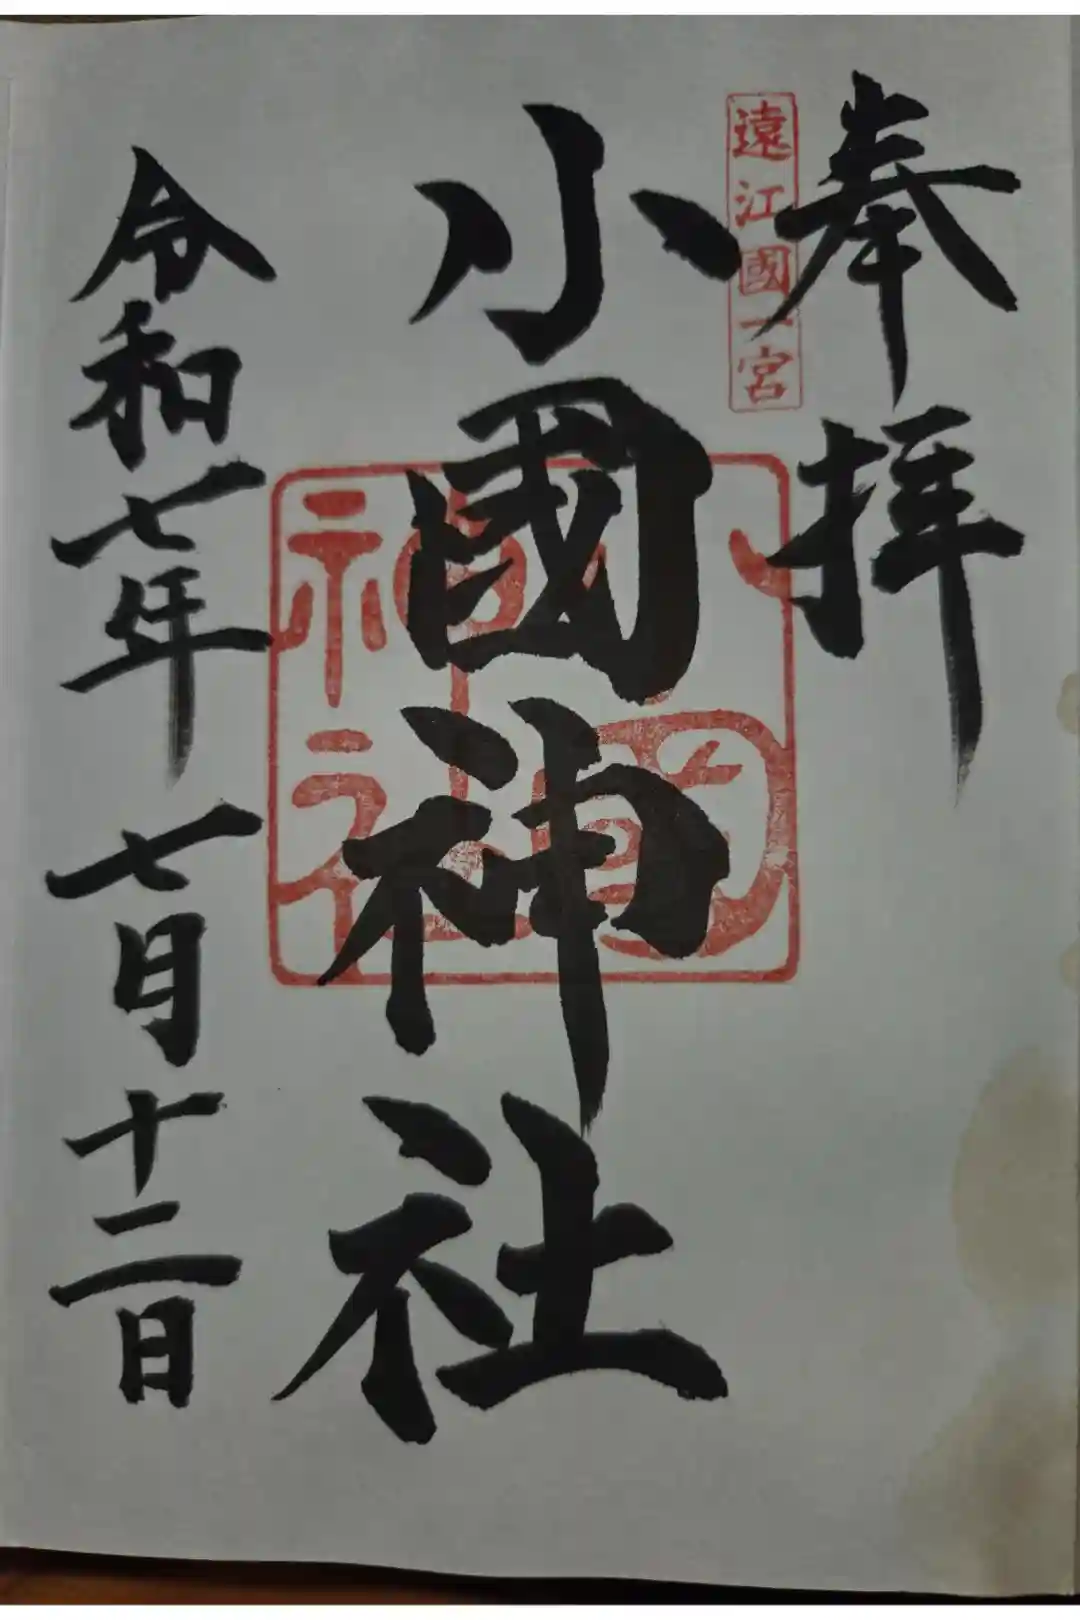 奉拝
遠江國一宮
小國神社
小國
神社
令和七年 七月十二日